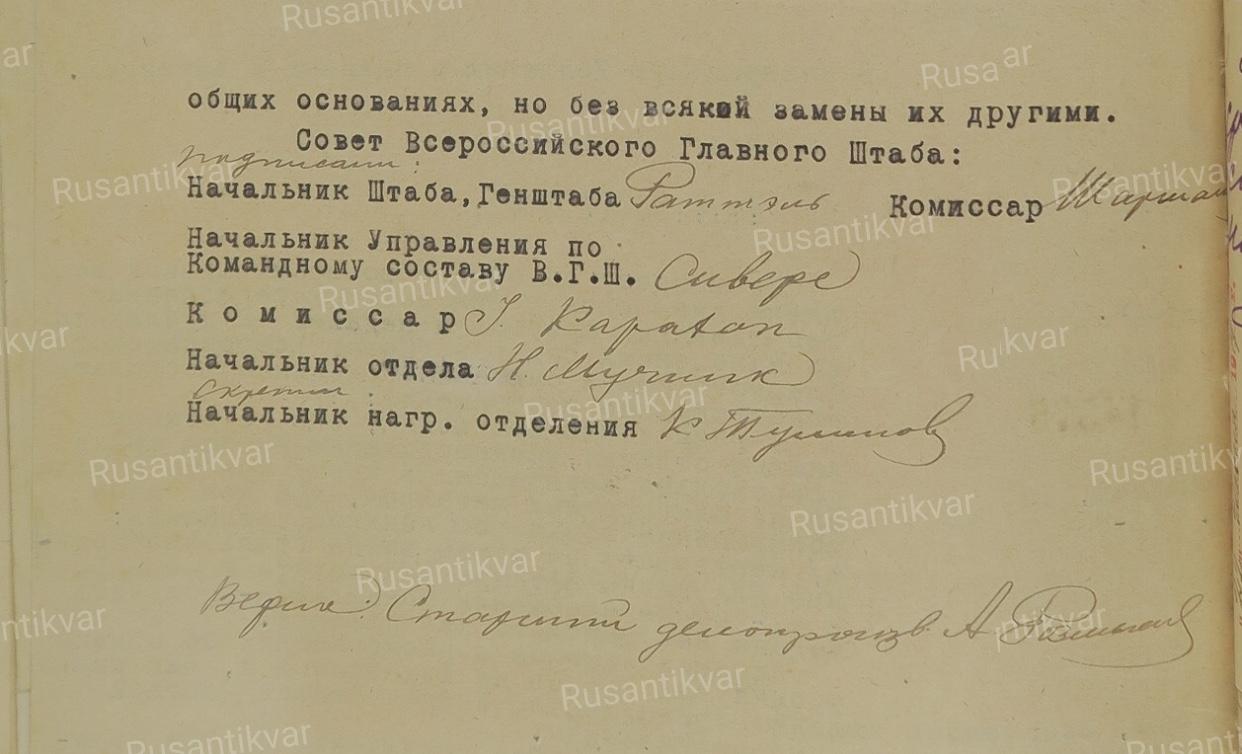 общих основаниях, но без всякой замены их другими.
Совет Всероссийского Главного Штаба:
подписали:
Начальник Штаба, Генштаба Раттэль Комиссар
Начальник Управления по
Командному составу В.Г.Ш. Сиверс
Комиссар
Начальник отдела Н. Мучник
Скрепил
Начальник нагр. отделения К Туманов
Верно: Старший делопроизв. А
Rusantikvar